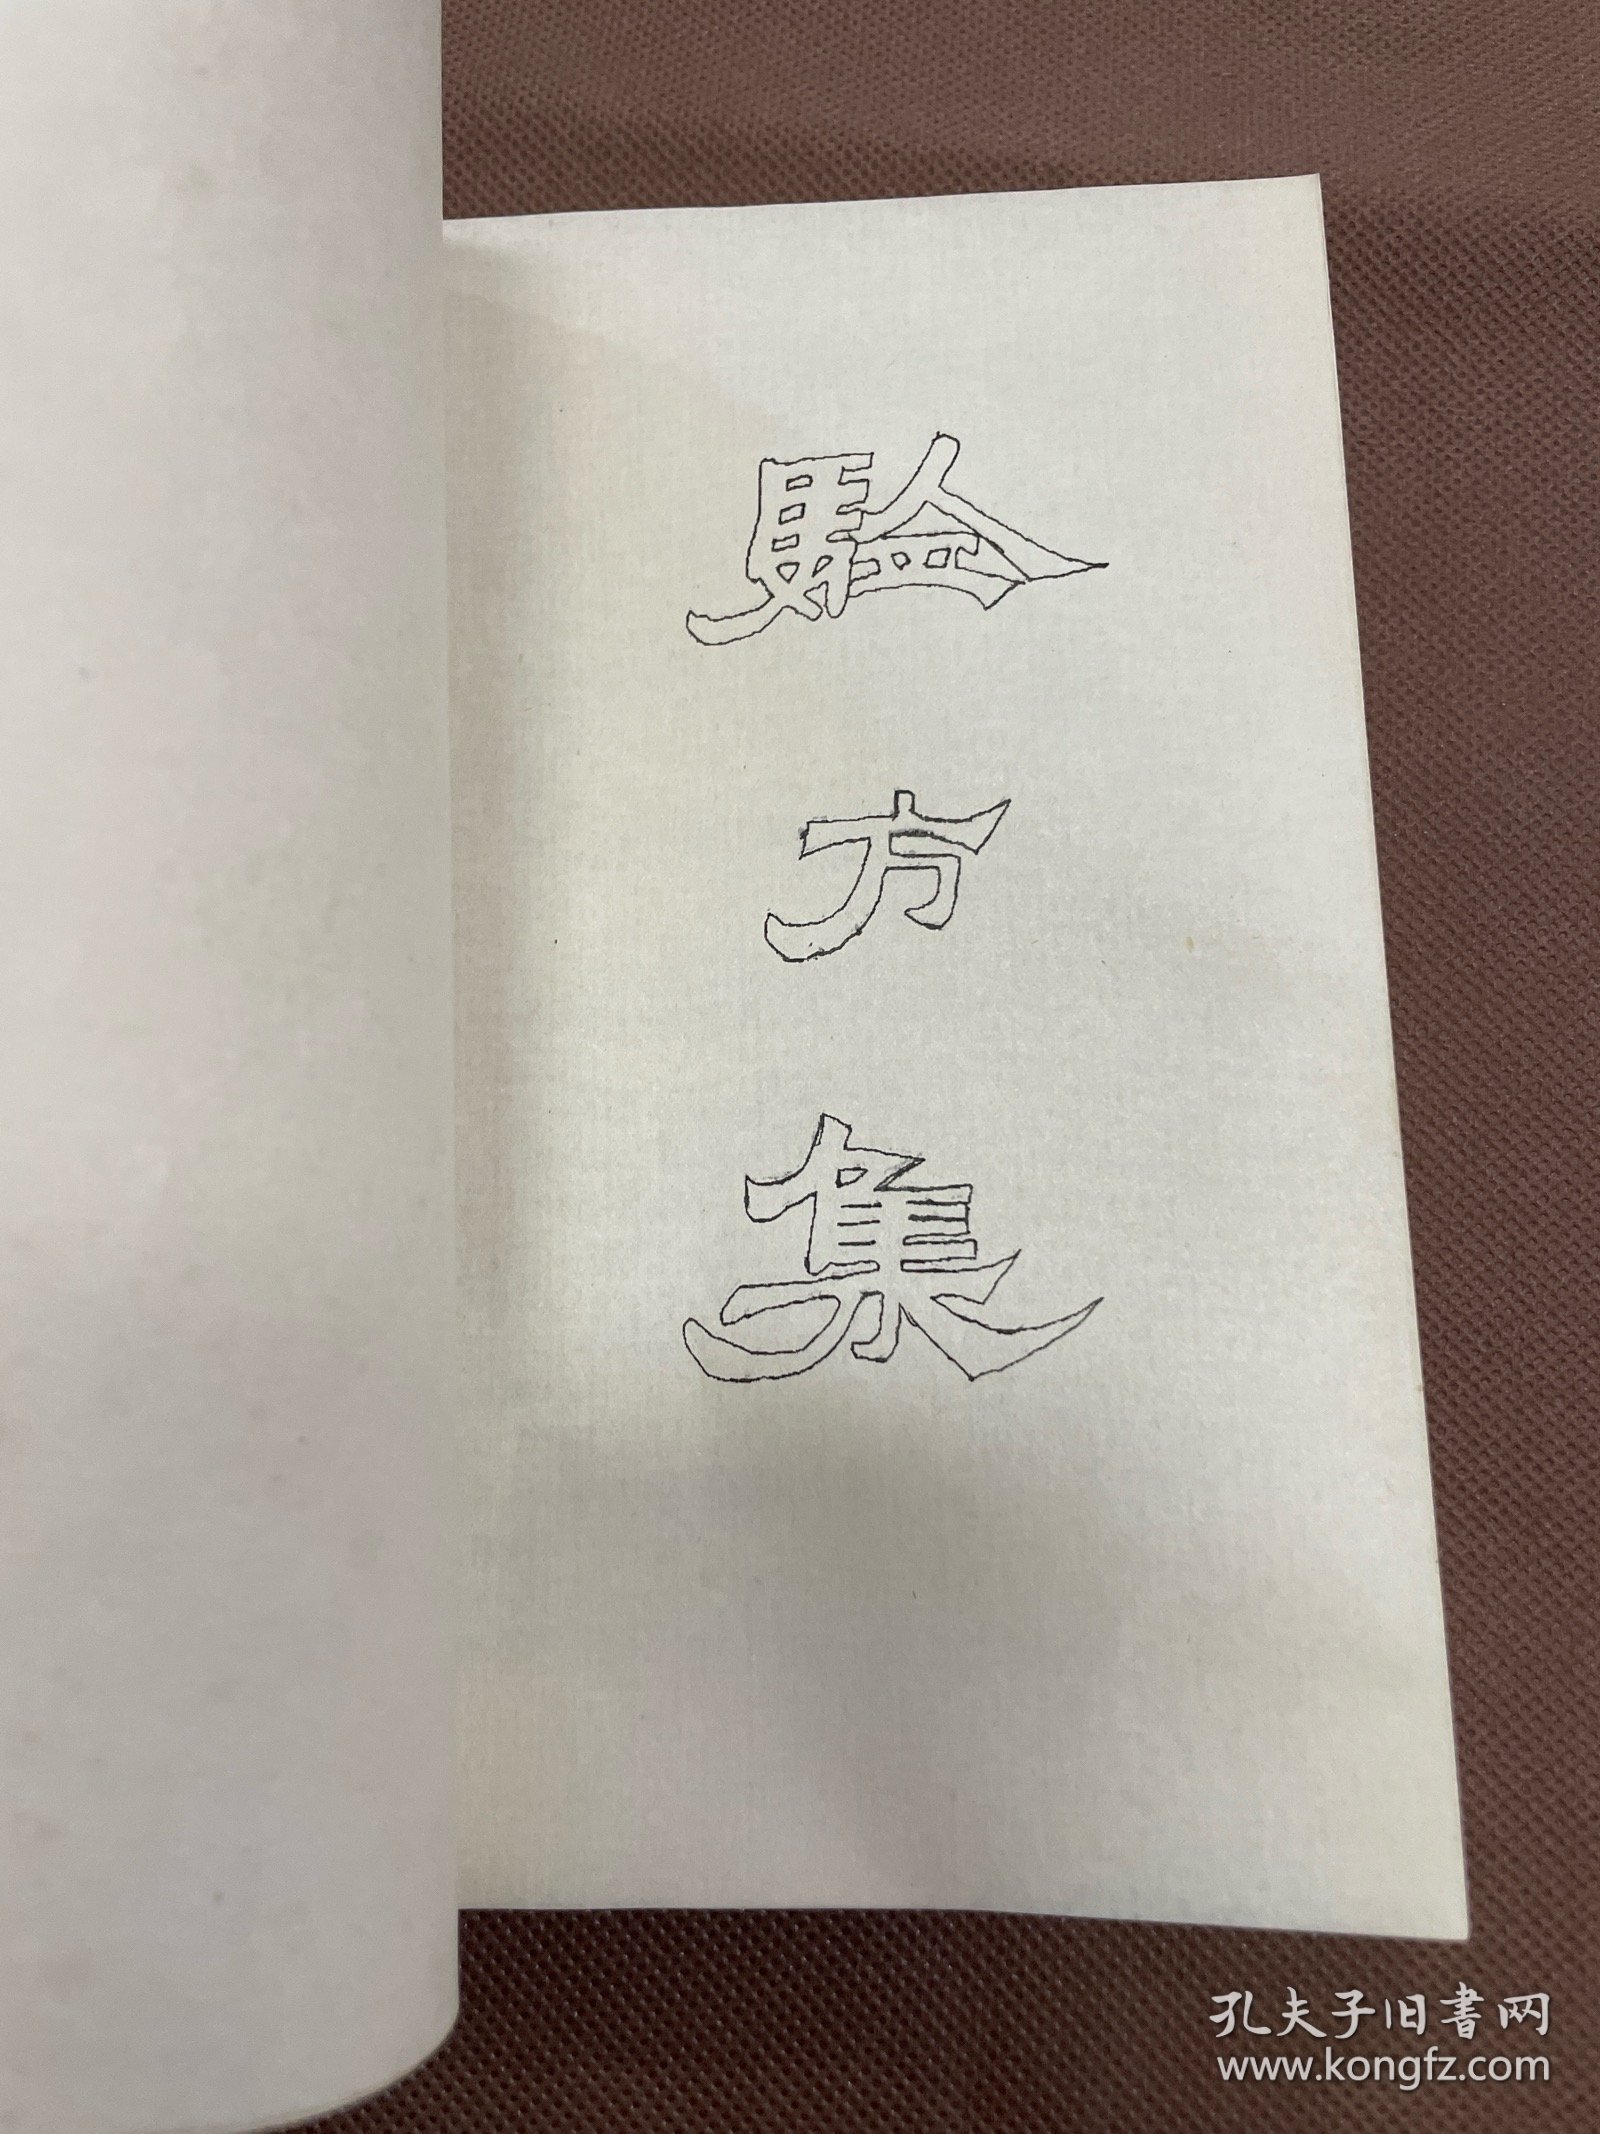 騐
方
集
孔夫子旧書网
www.kongfz.com